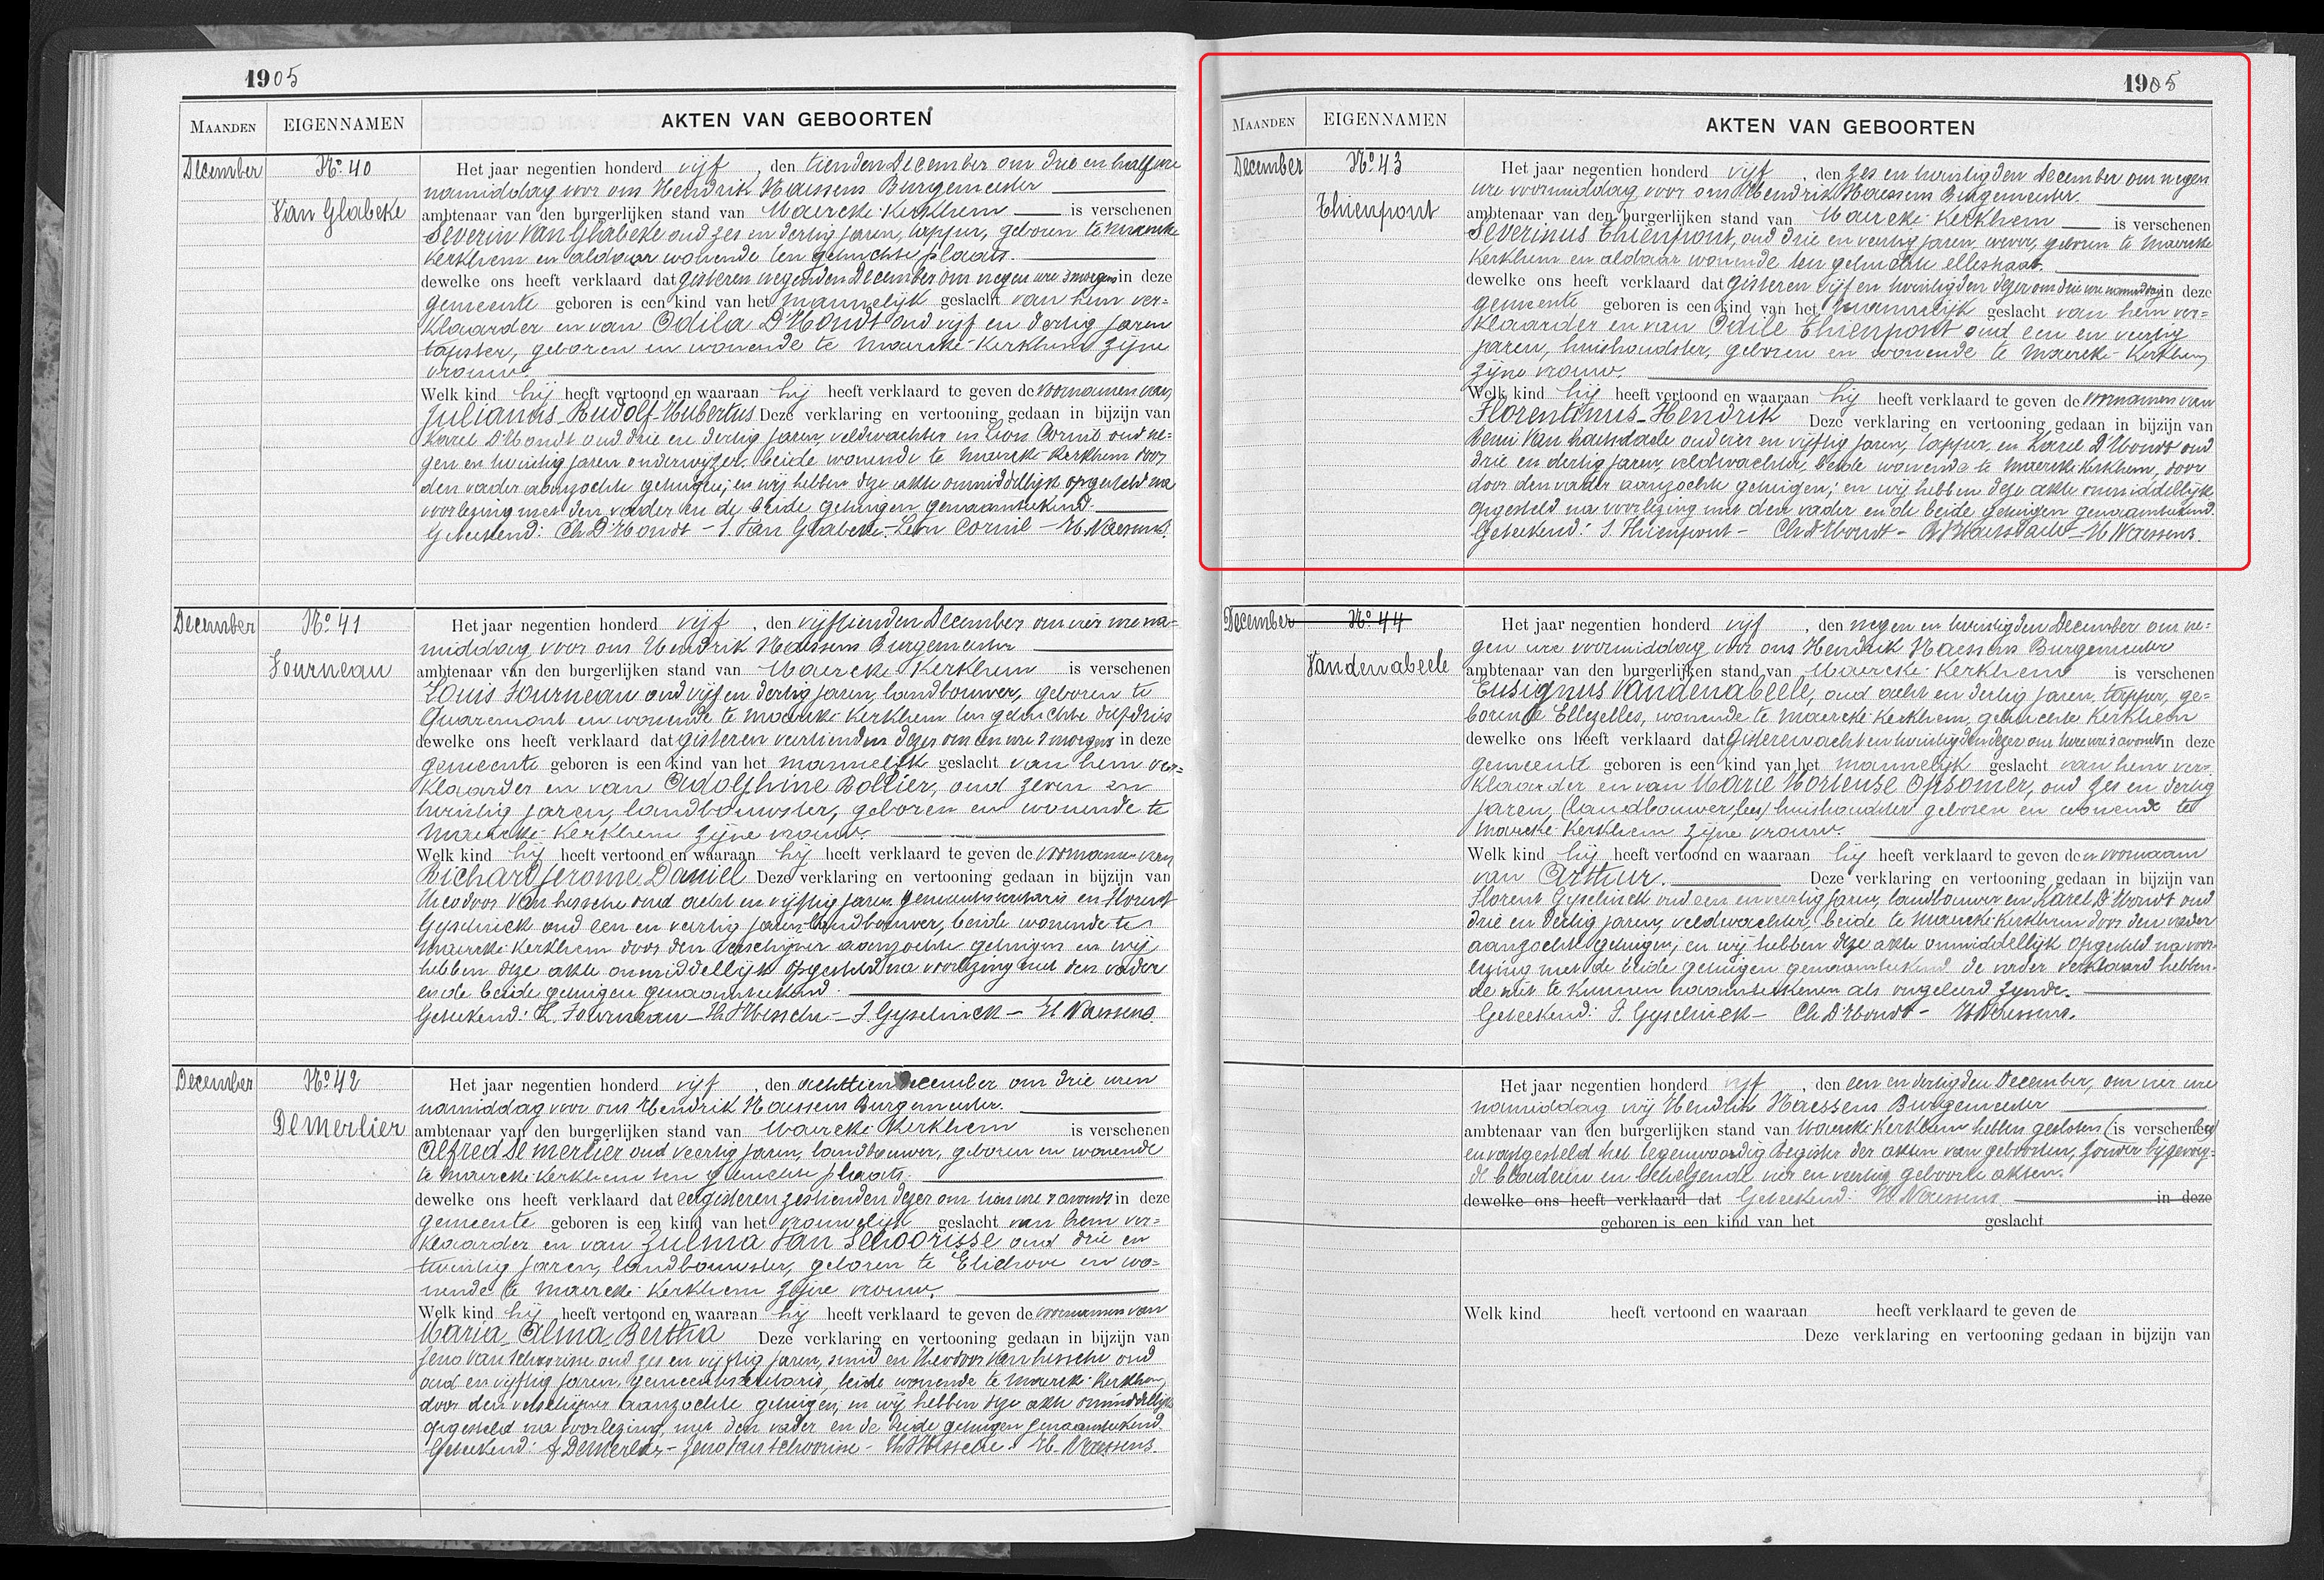 1905
MAANDEN EIGENNAMEN AKTEN VAN GEBOORTEN
December No 40 Het jaar negentien honderd vijf, den tienden December om drie en half ure
namiddag voor ons Hendrik Naessens Burgemeester
Van Glabeke ambtenaar van den burgerlijken stand van Maercke-Kerkhem is verschenen
Severin Van Glabeke oud zes en dertig jaren, tapper, geboren te Maercke
Kerkhem en aldaar wonende ten gehuchte plaats.
dewelke ons heeft verklaard dat gisteren negenden December om negen ure 's morgens in deze
gemeente geboren is een kind van het mannelijk geslacht van hem ver=
klaarder en van Odila D'Hondt oud vijf en dertig jaren
tapster, geboren en wonende te Maercke-Kerkhem zijne
vrouw.
Welk kind hij heeft vertoond en waaraan hij heeft verklaard te geven de voornamen van
Julianus-Rudolf-Hubertus Deze verklaring en vertooning gedaan in bijzijn van
Karel D'Hondt oud drie en dertig jaren, veldwachter en Leon Cornil oud ne=
gen en twintig jaren onderwijzer, beide wonende te Maercke-Kerkhem door
den vader aanzochte getuigen; en wij hebben deze akte onmiddellijk opgesteld na
voorlezing met den vader en de beide getuigen genaamteekend.
Geteekend: Ch D'Hondt - S. Van Glabeke - Leon Cornil - H. Naessens.
December No 41 Het jaar negentien honderd vijf, den vijftienden December om vier ure na=
middag voor ons Hendrik Naessens Burgemeester
Fourneau ambtenaar van den burgerlijken stand van Maercke-Kerkhem is verschenen
Louis Fourneau oud vijf en dertig jaren, landbouwer, geboren te
Quaremont en wonende te Maercke-Kerkhem ten gehuchte
dewelke ons heeft verklaard dat gisteren veertienden dezer om een ure 's morgens in deze
gemeente geboren is een kind van het mannelijk geslacht van hem ver=
klaarder en van Adolphine Bollier, oud zeven en
twintig jaren, landbouwster, geboren en wonende te
Maercke-Kerkhem zijne vrouw
Welk kind hij heeft vertoond en waaraan hij heeft verklaard te geven de voornamen van
Richard Jerome Daniel Deze verklaring en vertooning gedaan in bijzijn van
Theodoor Van hessche oud acht en vijftig jaren gemeentesecretaris en Florent
Gyselinck oud een en veertig jaren landbouwer, beide wonende te
Maercke-Kerkhem door den verschijner aanzochte getuigen en wij
hebben deze akte onmiddellijk opgesteld na voorlezing met den vader
en de beide getuigen genaamteekend.
Geteekend: L. Fourneau - - F. Gyselinck - H Naessens.
December No 42 Het jaar negentien honderd vijf, den achttien December om drie uren
namiddag voor ons Hendrik Naessens Burgemeester.
Demerlier ambtenaar van den burgerlijken stand van Maercke-Kerkhem is verschenen
Alfred Demerlier oud veertig jaren, landbouwer, geboren en wonende
te Maercke-Kerkhem ten gehuchte plaats.
dewelke ons heeft verklaard dat eergisteren zestienden dezer om tien ure 's avonds in deze
gemeente geboren is een kind van het vrouwelijk geslacht van hem ver=
klaarder en van Zulma Van Schoorisse oud drie en
twintig jaren, landbouwster, geboren te Etichove en wo=
nende te Maercke-Kerkhem zijne vrouw.
Welk kind hij heeft vertoond en waaraan hij heeft verklaard te geven de voornamen van
Maria-Alma-Bertha Deze verklaring en vertooning gedaan in bijzijn van
Zeno Van Schoorisse oud zes en vijftig jaren, smid en Theodoor Van hessche oud
en vijftig jaren, gemeentesecretaris, beide wonende te Maercke-Kerkhem,
door den verschijner aanzochte getuigen, en wij hebben deze akte onmiddellijk
opgesteld na voorlezing, met den vader en de beide getuigen genaamteekend.
Geteekend: A Demerlier - Zeno Van Schoorisse - - H. Naessens.
1905
MAANDEN EIGENNAMEN AKTEN VAN GEBOORTEN
December No 43 Het jaar negentien honderd vijf, den zes en twintigden December om negen
ure voormiddag voor ons Hendrik Naessens Burgemeester.
Thienpont ambtenaar van den burgerlijken stand van Maercke-Kerkhem is verschenen
Severinus Thienpont, oud drie en veertig jaren, wever, geboren te Maercke
Kerkhem en aldaar wonende ten gehuchte ellestraat.
dewelke ons heeft verklaard dat gisteren vijf en twintigden dezer om drie ure namiddag in deze
gemeente geboren is een kind van het mannelijk geslacht van hem ver=
klaarder en van Odile Thienpont oud een en veertig
jaren, huishoudster, geboren en wonende te Maercke-Kerkhem,
zijne vrouw.
Welk kind hij heeft vertoond en waaraan hij heeft verklaard te geven de voornamen van
Florentinus-Hendrik Deze verklaring en vertooning gedaan in bijzijn van
Remi Van oud en vijftig jaren, tapper, en Karel D'Hondt oud
drie en dertig jaren, veldwachter, beide wonende te Maercke-Kerkhem, door
door den vader aanzochte getuigen; en wij hebben deze akte onmiddellijk
opgesteld na voorlezing met den vader en de beide getuigen genaamteekend.
Geteekend: S. Thienpont - Ch D'Hondt - - H Naessens.
December No 44 Het jaar negentien honderd vijf, den negen en twintigden December om ne=
gen ure voormiddag voor ons Hendrik Naessens Burgemeester
Vandenabeele ambtenaar van den burgerlijken stand van Maercke-Kerkhem is verschenen
Eusignus Vandenabeele, oud acht en dertig jaren, tapper, ge=
boren te Ellezelles, wonende te Maercke-Kerkhem, gehuchte Kerkhem
dewelke ons heeft verklaard dat gisteren acht en twintigden dezer om twee ure 's avonds in deze
gemeente geboren is een kind van het mannelijk geslacht van hem ver=
klaarder en van Marie Hortense Opsomer, oud zes en dertig
jaren, (landbouwer, lees) huishoudster geboren en wonende te
Maercke-Kerkhem zijne vrouw.
Welk kind hij heeft vertoond en waaraan hij heeft verklaard te geven den voornaam
van Arthur. Deze verklaring en vertooning gedaan in bijzijn van
Florent Gyselinck oud een en veertig jaren, landbouwer en Karel D'Hondt oud
drie en dertig jaren, veldwachter, beide te Maercke-Kerkhem door den vader
aanzochte getuigen; en wij hebben deze akte onmiddellijk opgesteld na voor=
lezing met de beide getuigen genaamteekend de vader verklaard hebben=
de niet te kunnen naamteekenen als ongeleerd zijnde.
Geteekend: F. Gyselinck - Ch D'Hondt - H Naessens.
Het jaar negentien honderd vijf, den een en dertigden December, om vier ure
namiddag wij Hendrik Naessens Burgemeester
ambtenaar van den burgerlijken stand van Maercke-Kerkhem hebben gesloten (is verschenen)
en vastgesteld het tegenwoordig Register der akten van geboorten, zonder bijgevoeg=
de bladeren en behelzende vier en veertig geboorte akten.
dewelke ons heeft verklaard dat Geteekend: H. Naessens in deze
geboren is een kind van het geslacht
Welk kind heeft vertoond en waaraan heeft verklaard te geven de
Deze verklaring en vertooning gedaan in bijzijn van